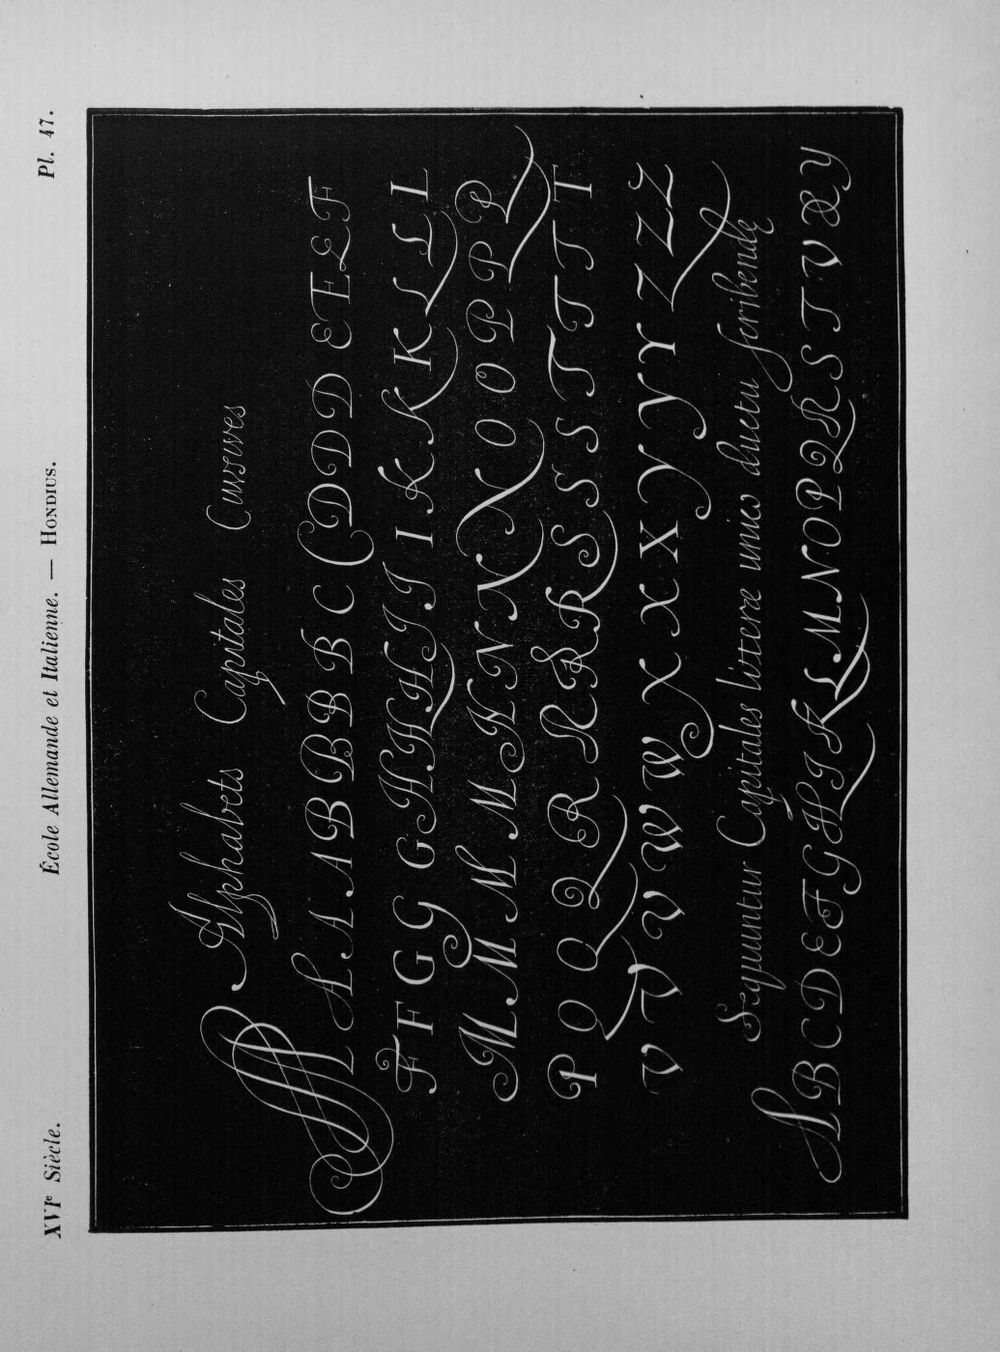 XVIe Siècle. École Allemande et Italienne. — HONDIUS. Pl. 47.
Alphabets Capitales Cursives
A A A A B B B B C C D D D E E E F
F F G G G H H H I I I K K K L L L
M M M M N N N N O O P P P
P Q Q Q R R R R S S S T T T T
V V V W W X X X Y Y Y Z Z Z
Sequuntur Capitales literæ unico ductu scribendę
A B C D E F G H I K L M N O P Q R S T V X Y